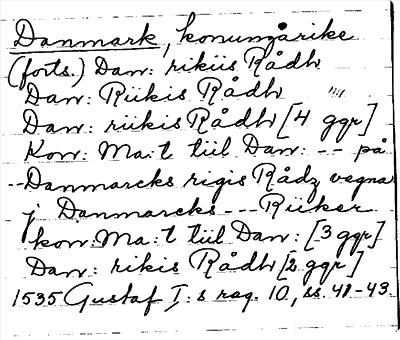 Danmark, konungarike
(forts.) Dan: rikiis Rådh
Dan: Riikis Rådh "
Dan: riikis Rådh [4 ggr]
Kon: Ma:t tiil Dan: -- på
-- Danmarcks rigis Rådz vegna
j Danmarcks --- Riiker
kon: Ma:t tiil Dan: [3 ggr]
Dan: rikis Rådh [2 ggr]
1535 Gustaf I:s reg. 10, ss. 41-43.